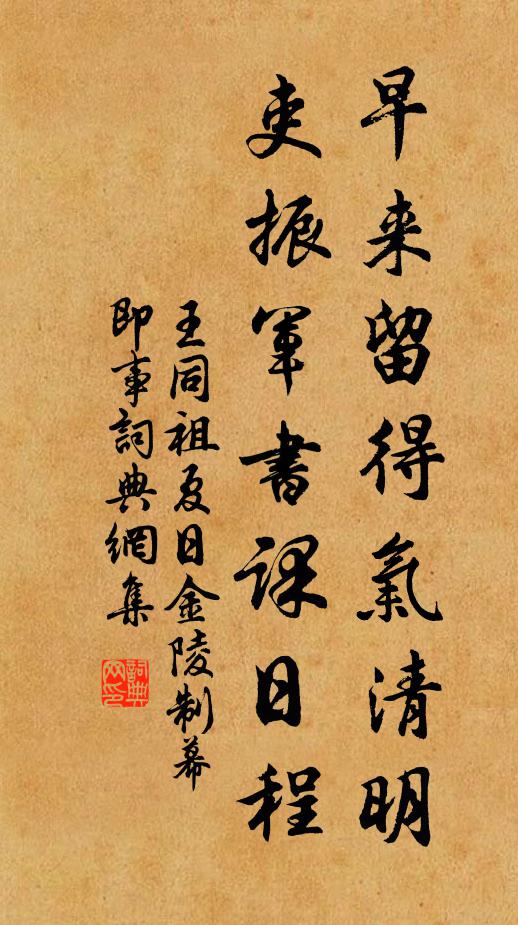 早来留得氣清明
吏振軍書課日程
王同祖夏日金陵制幕
即事詞典網集
詞典網印